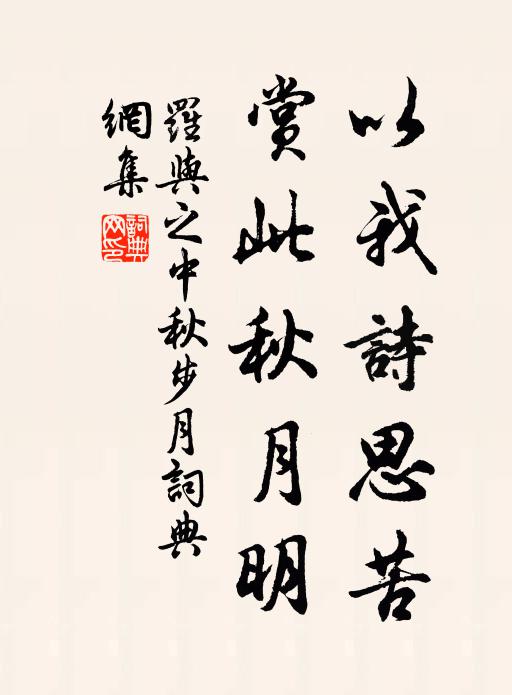 以我詩思苦
賞此秋月明
羅與之中秋步月詞典
網集
詞典
网印